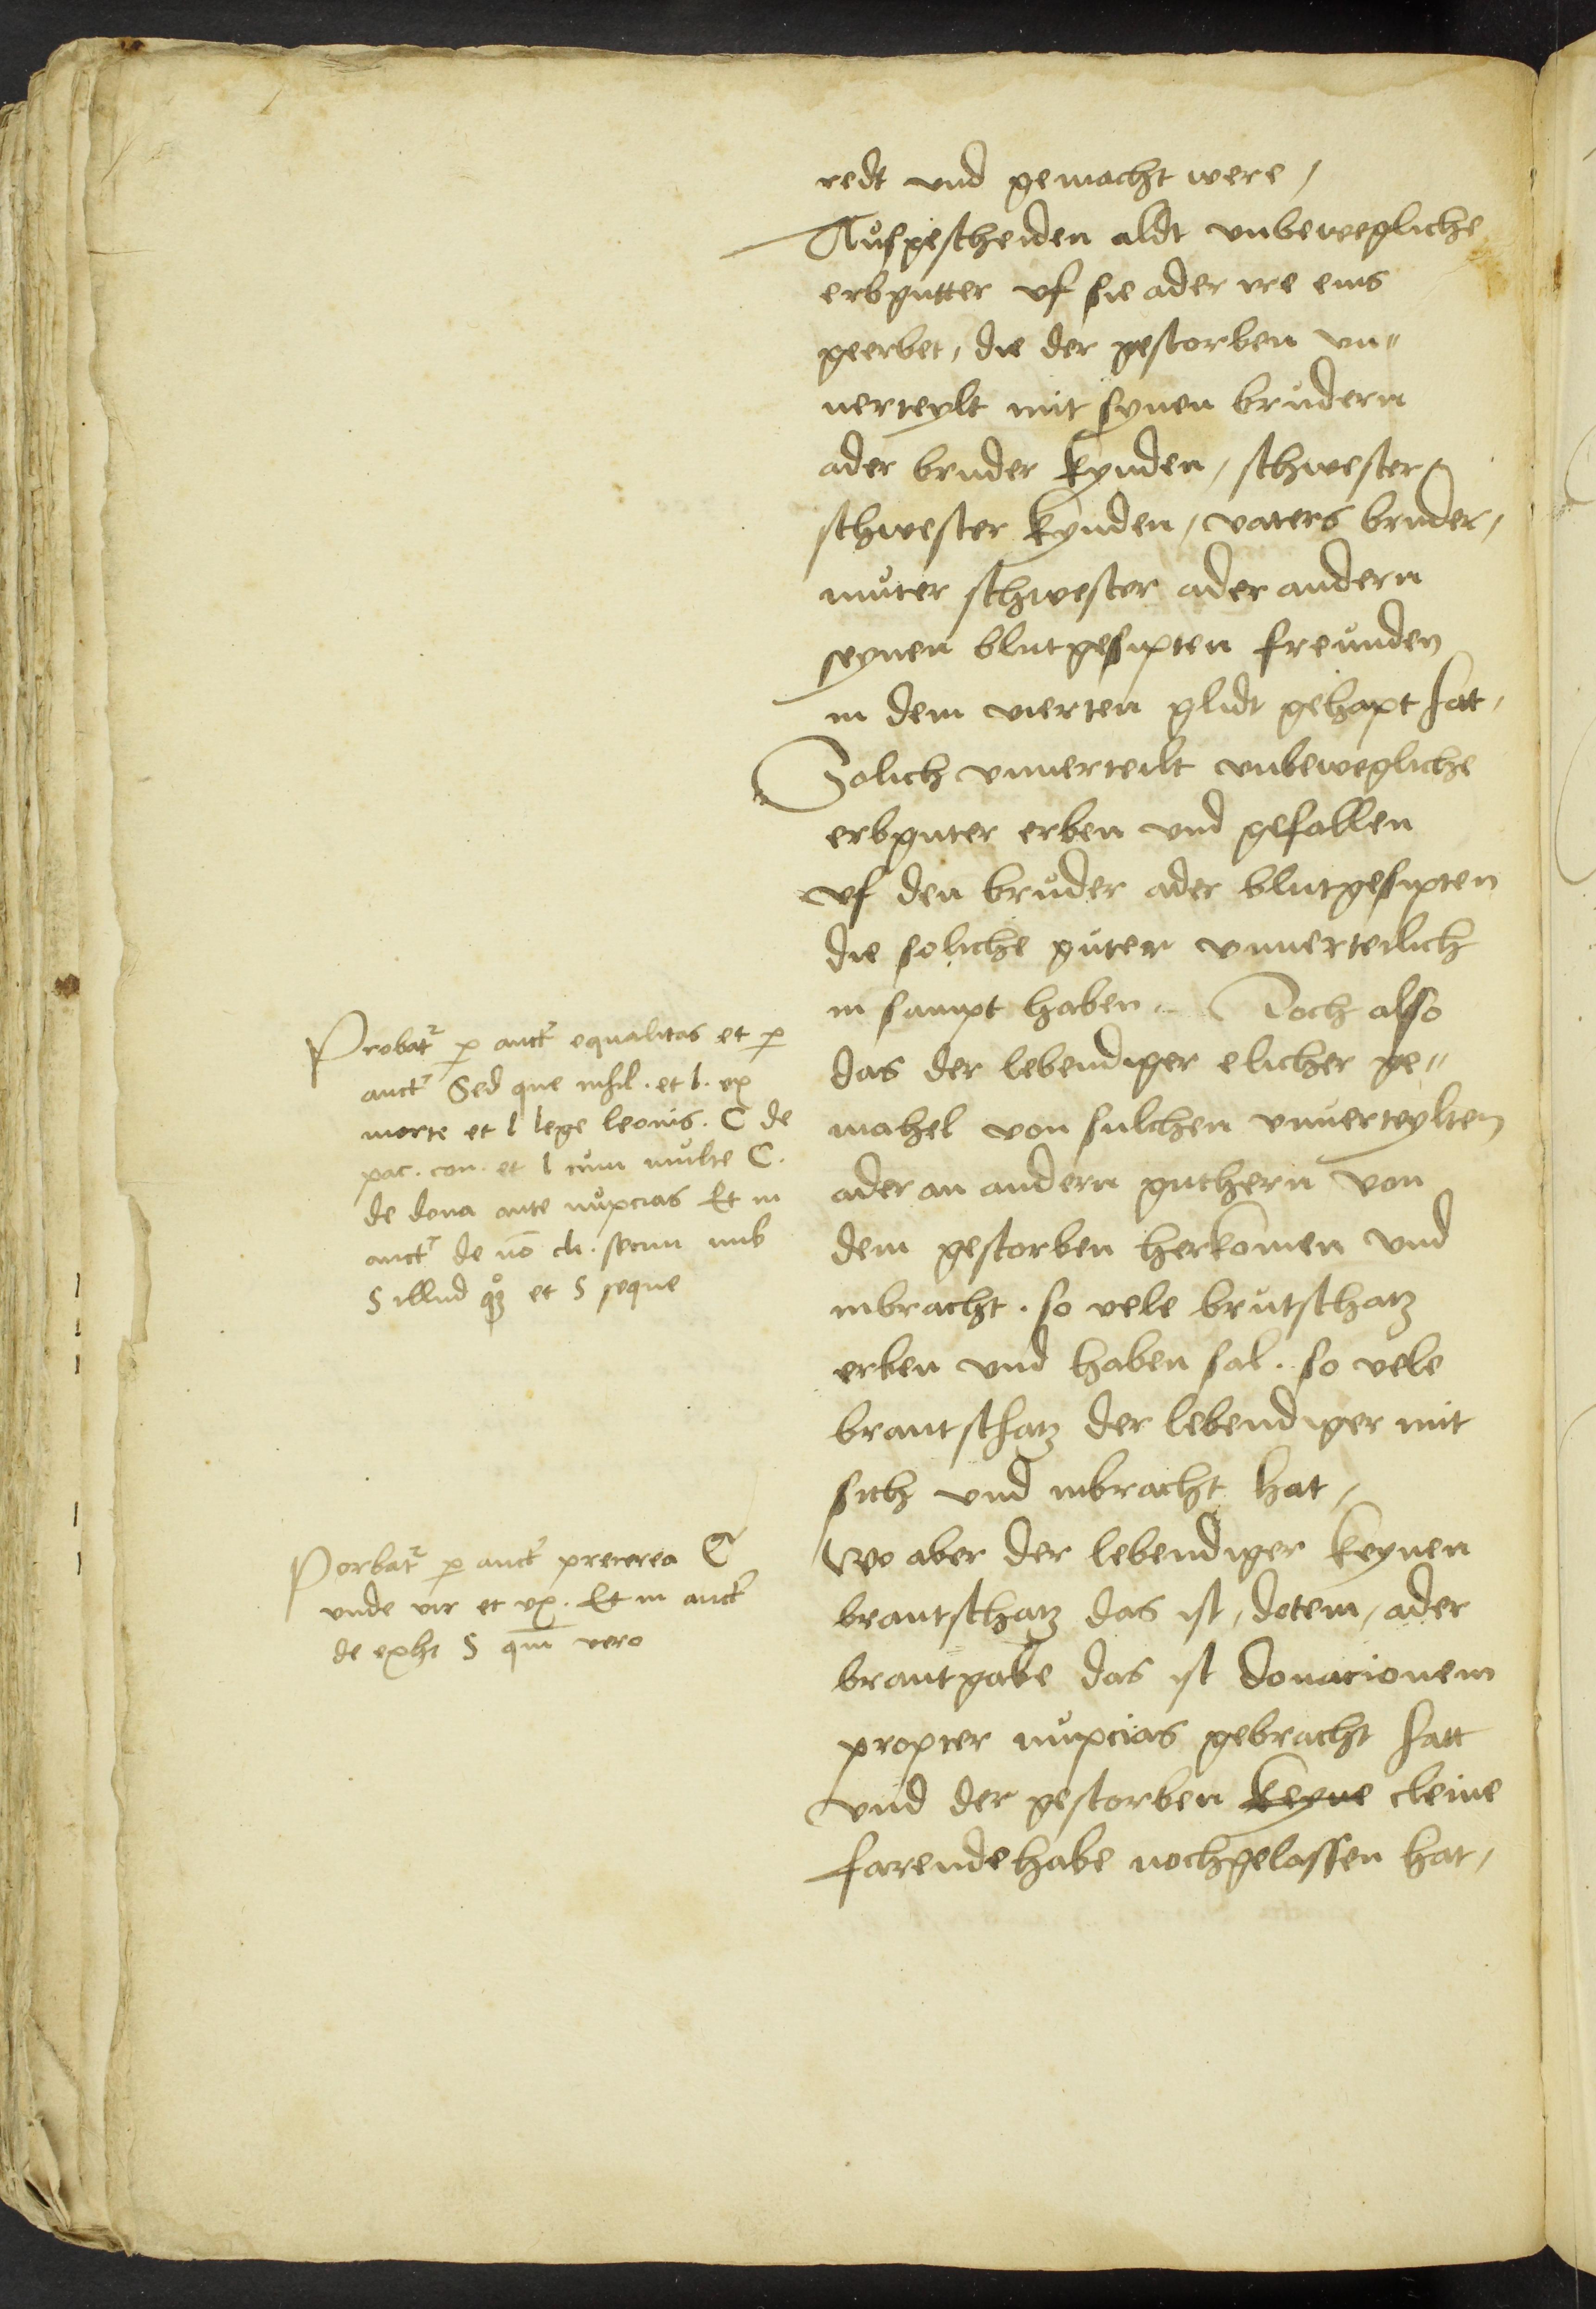 redt vnd gemacht were /
Aůsgescheiden aldt vnbewegliche
erbgutter vf sie ader ire eins
geerbet, die der gestorben vn„
uerteylt mit synen brůdern
ader bruder kynden, schwester
schwester kynden, vaters bruder,
můter schwester ader andern
seynen blutgesipten freůnden
in dem vierten glidt gehapt hatt,
Solich vnuerteilt vnbewegliche
erbguter erben vnd gefallen
vf den brůder ader blutgesipten
die soliche gůter vnuerteilich
in sampt haben. Doch also
das der lebendiger elicher ge„
mahel von sulchen vnuerteylten
ader an andern guthern von
dem gestorben herkomen vnd
inbracht. so vele brůtschatz
erben vnd haben sal. so vele
brautschatz der lebendiger mit
sich vnd inbracht hat,
Wo aber der lebendiger keynen
brautschatz das ist, dotem, ader
brautgabe das ist donacionem
propter nůpcias gebracht hatt
vnd der gestorben keyne cleine
farende habe nochgelassen hat,
Probatr p auct equalitas et p
auctr Sed que nihil. et l. ex
morte et l lege leonis. C de
pac. con. et l cům můlte C.
de dona ante nůpcias Et in
auctr de no eli. secun nub
§ illud qz et § seque
Porbatr p auct preterea C
vnde vir et vx. Et in auct
de exht § qm vero